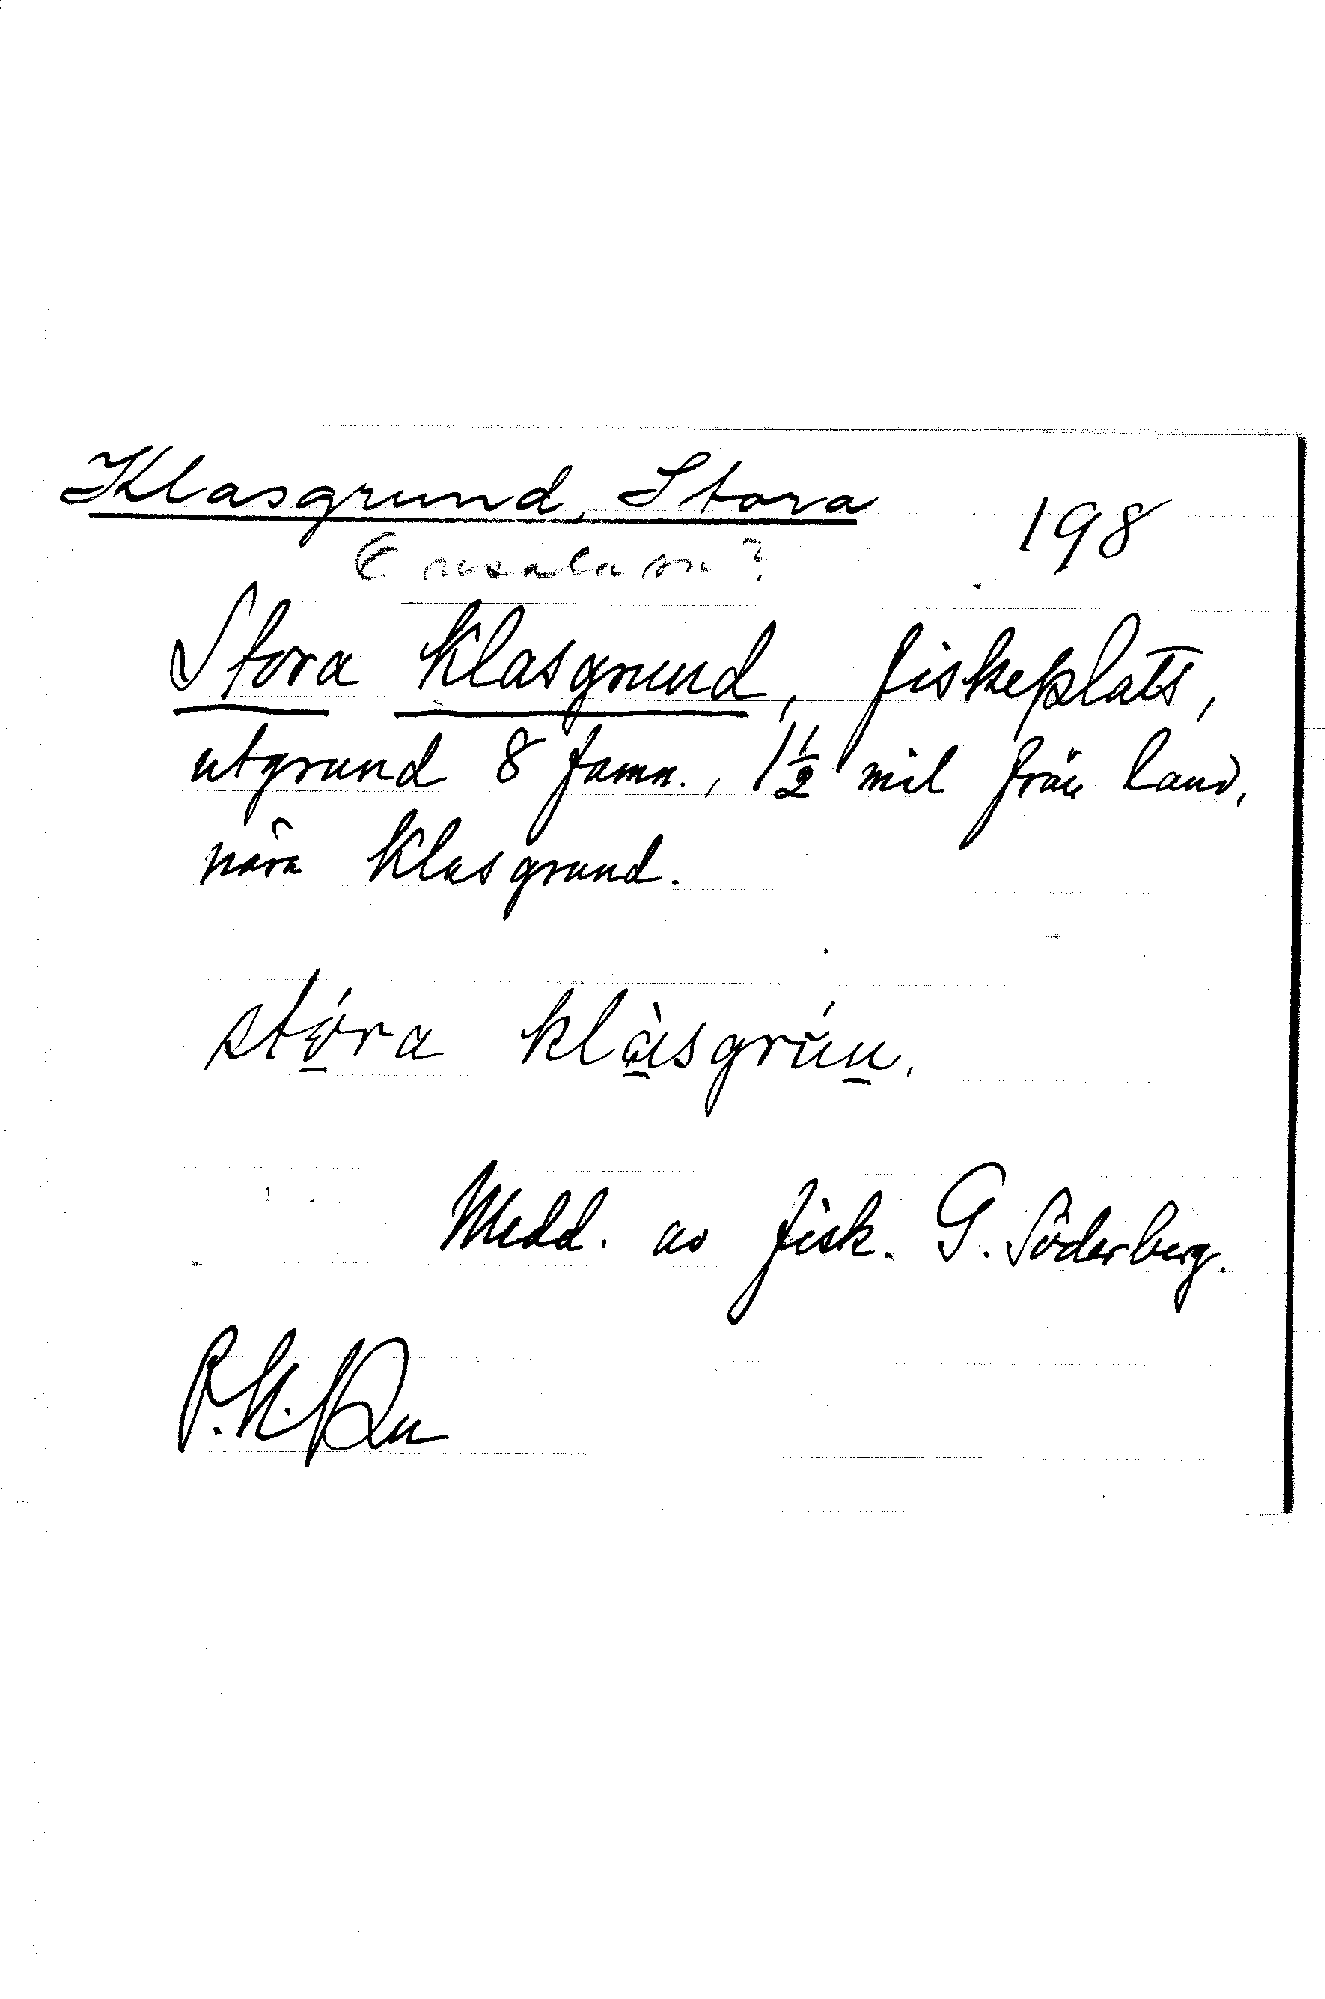 Klasgrund, Stora
198
Stora Klasgrund, fiskeplats,
utgrund 8 famn., 1½ mil från land,
nära Klasgrund.
stóra klàsgrún.
Medd. av fisk. G. Söderberg.